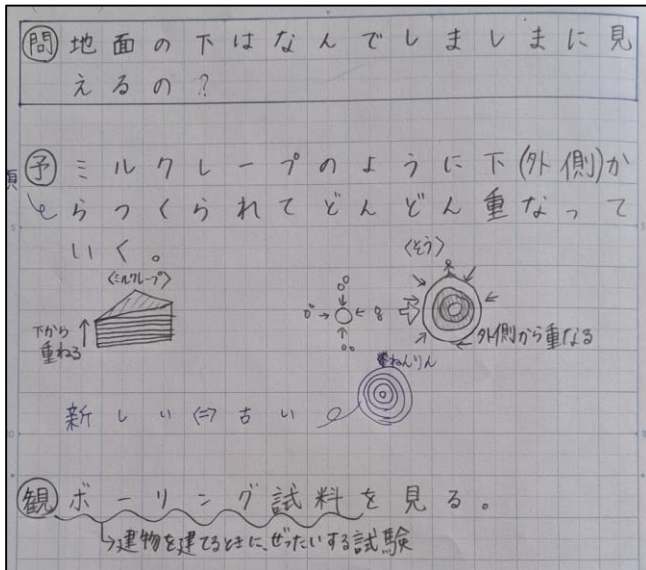 問 地面の下はなんでしましまに見
えるの?
予 ミルクレープのように下(外側)か
らつくられてどんどん重なって
いく。
〈ミルクレープ〉
下から
重ねる
〈そう〉
外側から重なる
ねんりん
新しい⇔古い
観 ボーリング試料を見る。
→建物を建てるときに、ぜったいする試験